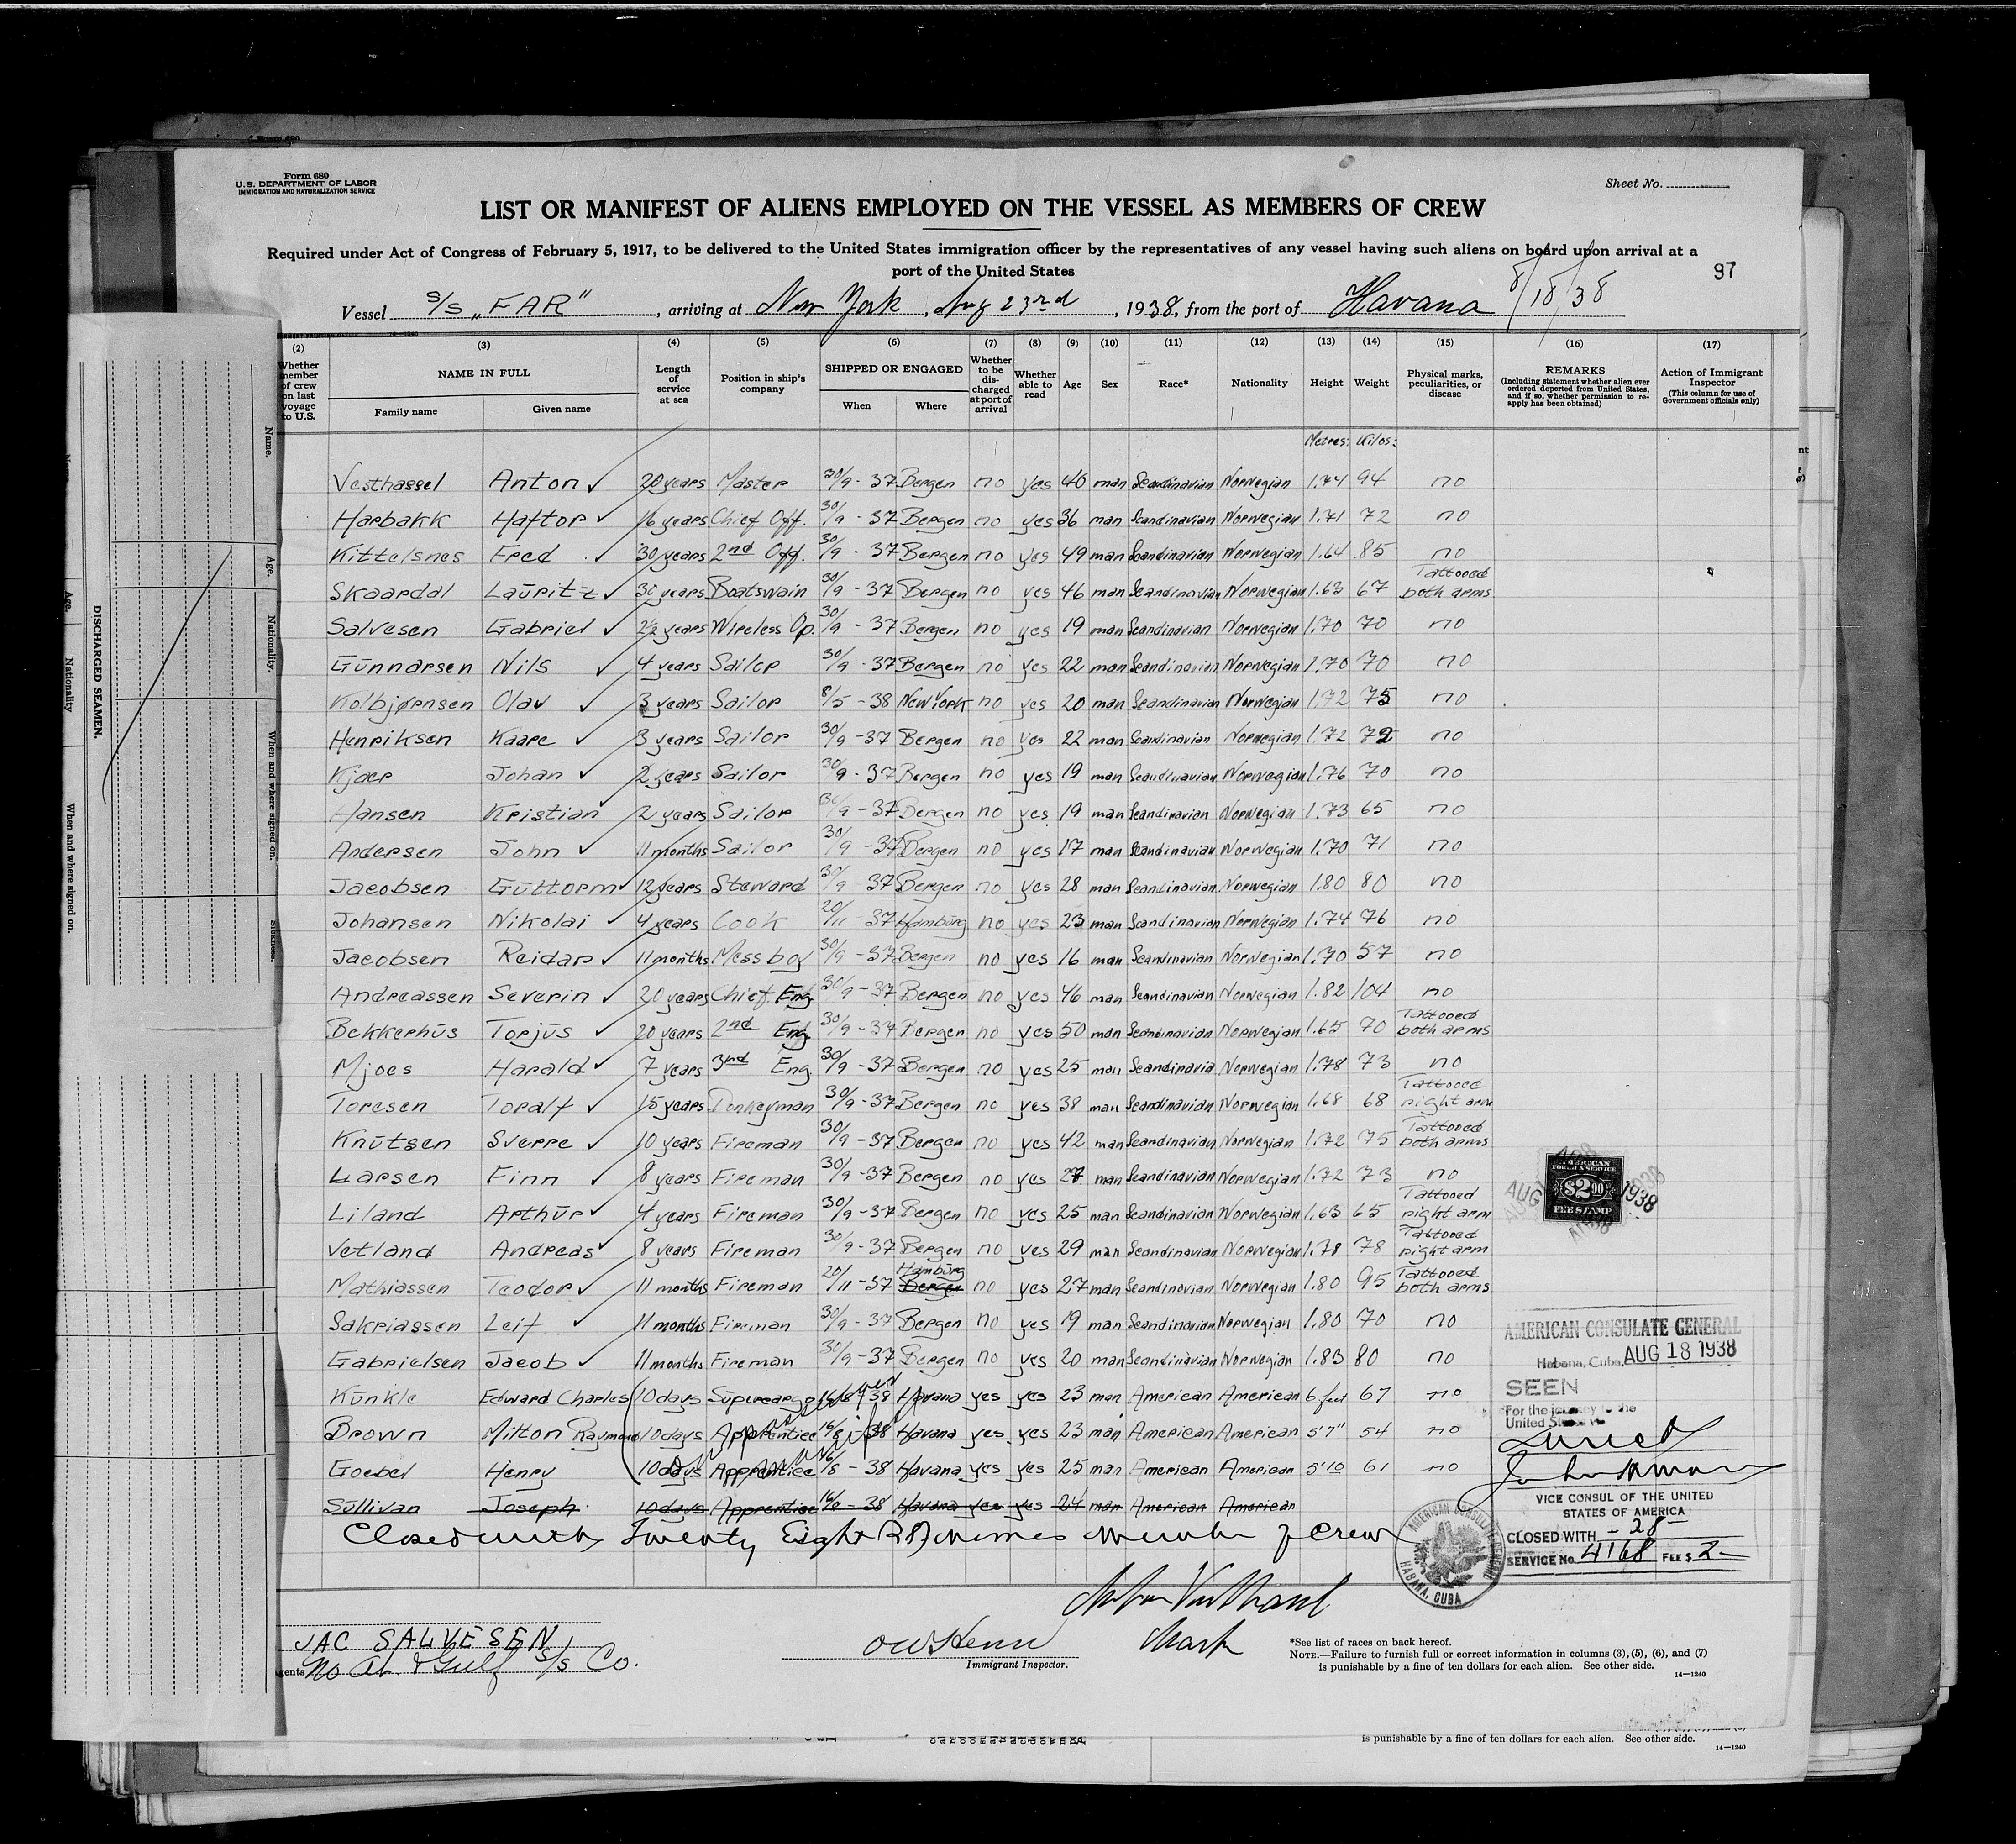 Form 680
U. S. DEPARTMENT OF LABOR
IMMIGRATION AND NATURALIZATION SERVICE
Sheet No.
LIST OR MANIFEST OF ALIENS EMPLOYED ON THE VESSEL AS MEMBERS OF CREW
Required under Act of Congress of February 5, 1917, to be delivered to the United States immigration officer by the representatives of any vessel having such aliens on board upon arrival at a
port of the United States
97
Vessel S/S „FAR" , arriving at New York , Aug 23rd , 1938, from the port of Havana 8/18/38
(2) (3) (4) (5) (6) (7) (8) (9) (10) (11) (12) (13) (14) (15) (16) (17)
Whether member of crew on last voyage to U.S. NAME IN FULL Family name Given name Length of service at sea Position in ship's company SHIPPED OR ENGAGED When Where Whether to be discharged at port of arrival Whether able to read Age Sex Race* Nationality Height Weight Physical marks, peculiarities, or disease REMARKS (Including statement whether alien ever ordered deported from United States, and if so, whether permission to reapply has been obtained) Action of Immigrant Inspector (This column for use of Government officials only)
Metres: Kilos:
Vesthassel Anton ✓ 20 years Master 30/9 - 37 Bergen no yes 40 man Scandinavian Norwegian 1.74 94 no
Harbakk Haftor ✓ 16 years Chief Off. 30/9 - 37 Bergen no yes 36 man Scandinavian Norwegian 1.71 72 no
Kittelsnes Fred ✓ 30 years 2nd Off. 30/9 - 37 Bergen no yes 49 man Scandinavian Norwegian 1.64 85 no
Skaardal Lauritz ✓ 30 years Boatswain 30/9 - 37 Bergen no yes 46 man Scandinavian Norwegian 1.63 67 Tattooed both arms
Salvesen Gabriel ✓ 2½ years Wireless Op. 30/9 - 37 Bergen no yes 19 man Scandinavian Norwegian 1.70 70 no
Gunnarsen Nils ✓ 4 years Sailor 30/9 - 37 Bergen no yes 22 man Scandinavian Norwegian 1.70 70 no
Kolbjørnsen Olav ✓ 3 years Sailor 8/5 - 38 New York no yes 20 man Scandinavian Norwegian 1.72 75 no
Henriksen Kaare ✓ 3 years Sailor 30/9 - 37 Bergen no yes 22 man Scandinavian Norwegian 1.72 72 no
Kjaer Johan ✓ 2 years Sailor 30/9 - 37 Bergen no yes 19 man Scandinavian Norwegian 1.76 70 no
Hansen Kristian 2 years Sailor 30/9 - 37 Bergen no yes 19 man Scandinavian Norwegian 1.73 65 no
Andersen John ✓ 11 months Sailor 30/9 - 37 Bergen no yes 17 man Scandinavian Norwegian 1.70 71 no
Jacobsen Guttorm ✓ 12 years Steward 30/9 - 37 Bergen no yes 28 man Scandinavian Norwegian 1.80 80 no
Johansen Nikolai ✓ 4 years Cook 20/11 - 37 Hamburg no yes 23 man Scandinavian Norwegian 1.74 76 no
Jacobsen Reidar ✓ 11 months Mess boy 30/9 - 37 Bergen no yes 16 man Scandinavian Norwegian 1.70 57 no
Andreassen Severin ✓ 20 years Chief Eng. 30/9 - 37 Bergen no yes 46 man Scandinavian Norwegian 1.82 104 no
Bekkerhus Torjus ✓ 20 years 2nd Eng. 30/9 - 37 Bergen no yes 50 man Scandinavian Norwegian 1.65 70 Tattooed both arms
Mjoes Harald ✓ 7 years 3rd Eng. 30/9 - 37 Bergen no yes 25 man Scandinavia Norwegian 1.78 73 no
Toresen Toralf ✓ 15 years Donkeyman 30/9 - 37 Bergen no yes 38 man Scandinavian Norwegian 1.68 68 Tattooed right arm
Knutsen Sverre ✓ 10 years Fireman 30/9 - 37 Bergen no yes 42 man Scandinavian Norwegian 1.72 75 Tattooed both arms
Larsen Finn ✓ 8 years Fireman 30/9 - 37 Bergen no yes 27 man Scandinavian Norwegian 1.72 73 no
Liland Arthur ✓ 4 years Fireman 30/9 - 37 Bergen no yes 25 man Scandinavian Norwegian 1.63 65 Tattooed right arm
Vetland Andreas ✓ 8 years Fireman 30/9 - 37 Bergen no yes 29 man Scandinavian Norwegian 1.78 78 Tattooed right arm
Mathiassen Teodor ✓ 11 months Fireman 20/11 - 37 Hamburg Bergen no yes 27 man Scandinavian Norwegian 1.80 95 Tattooed both arms
Sakriassen Leif ✓ 11 months Fireman 30/9 - 37 Bergen no yes 19 man Scandinavian Norwegian 1.80 70 no
Gabrielsen Jacob ✓ 11 months Fireman 30/9 - 37 Bergen no yes 20 man Scandinavian Norwegian 1.83 80 no
Kunkle Edward Charles 10 days Supercargo 16/8 - 38 Havana yes yes 23 man American American 6 feet 67 no
Brown Milton Raymond 10 days Apprentice 16/8 - 38 Havana yes yes 23 man American American 5'7" 54 no
Goebel Henry 10 days Apprentice 16/8 - 38 Havana yes yes 25 man American American 5'10 61 no
Sullivan Joseph 10 days Apprentice 16/8 - 38 Havana yes yes 24 man American American
Closed with Twenty Eight (28) names member of crew
AMERICAN FOREIGN SERVICE $2.00 FEE STAMP
AUG 1938
AMERICAN CONSULATE GENERAL
Habana, Cuba, AUG 18 1938
SEEN
For the journey to the
United States
VICE CONSUL OF THE UNITED
STATES OF AMERICA
CLOSED WITH - 28 -
SERVICE No. 4168 FEE $ 2-
HABANA, CUBA
JAC SALVESEN
Agents No At. & Gulf S/S Co.
Immigrant Inspector.
*See list of races on back hereof.
NOTE.—Failure to furnish full or correct information in columns (3), (5), (6), and (7)
is punishable by a fine of ten dollars for each alien. See other side.
14—1240
is punishable by a fine of ten dollars for each alien. See other side.
14—1240
DISCHARGED SEAMEN.
Name.
Age.
Nationality.
When and where signed on.
Age.
Nationality
When and where signed on.